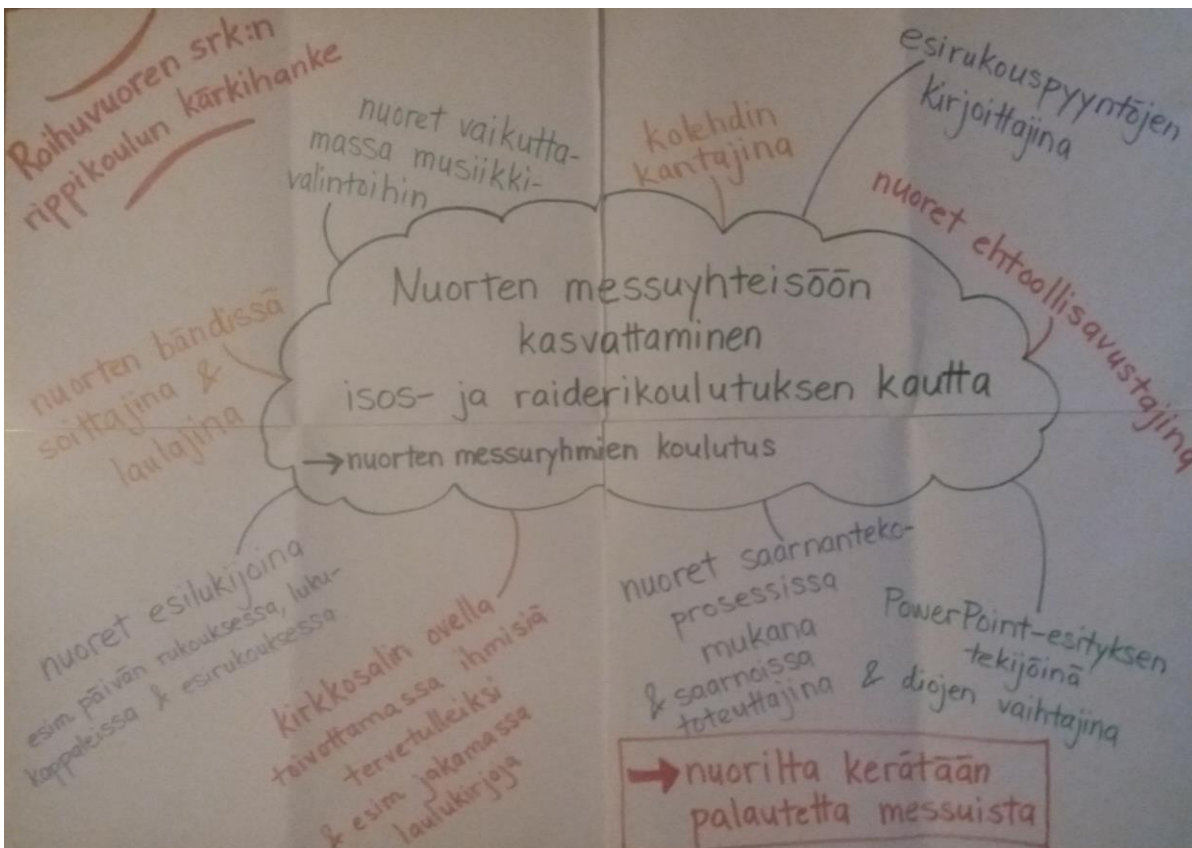 Roihuvuoren srk:n
rippikoulun kärkihanke
nuoret vaikutta-
massa musiikki-
valintoihin
kolehdin
kantajina
esirukouspyyntöjen
kirjoittajina
nuoret ehtoollisavustajina
Nuorten messuyhteisöön
kasvattaminen
isos- ja raiderikoulutuksen kautta
→nuorten messuryhmien koulutus
nuorten bändissä
soittajina &
laulajina
nuoret esilukijoina
esim päivän rukouksessa, luku-
kappaleissa & esirukouksessa
kirkkosalin ovella
toivottamassa ihmisiä
tervetulleiksi
& esim jakamassa
laulukirjoja
nuoret saarnanteko-
prosessissa
mukana
& saarnoissa
toteuttajina
PowerPoint-esityksen
tekijöinä
& diojen vaihtajina
→nuorilta kerätään
palautetta messuista